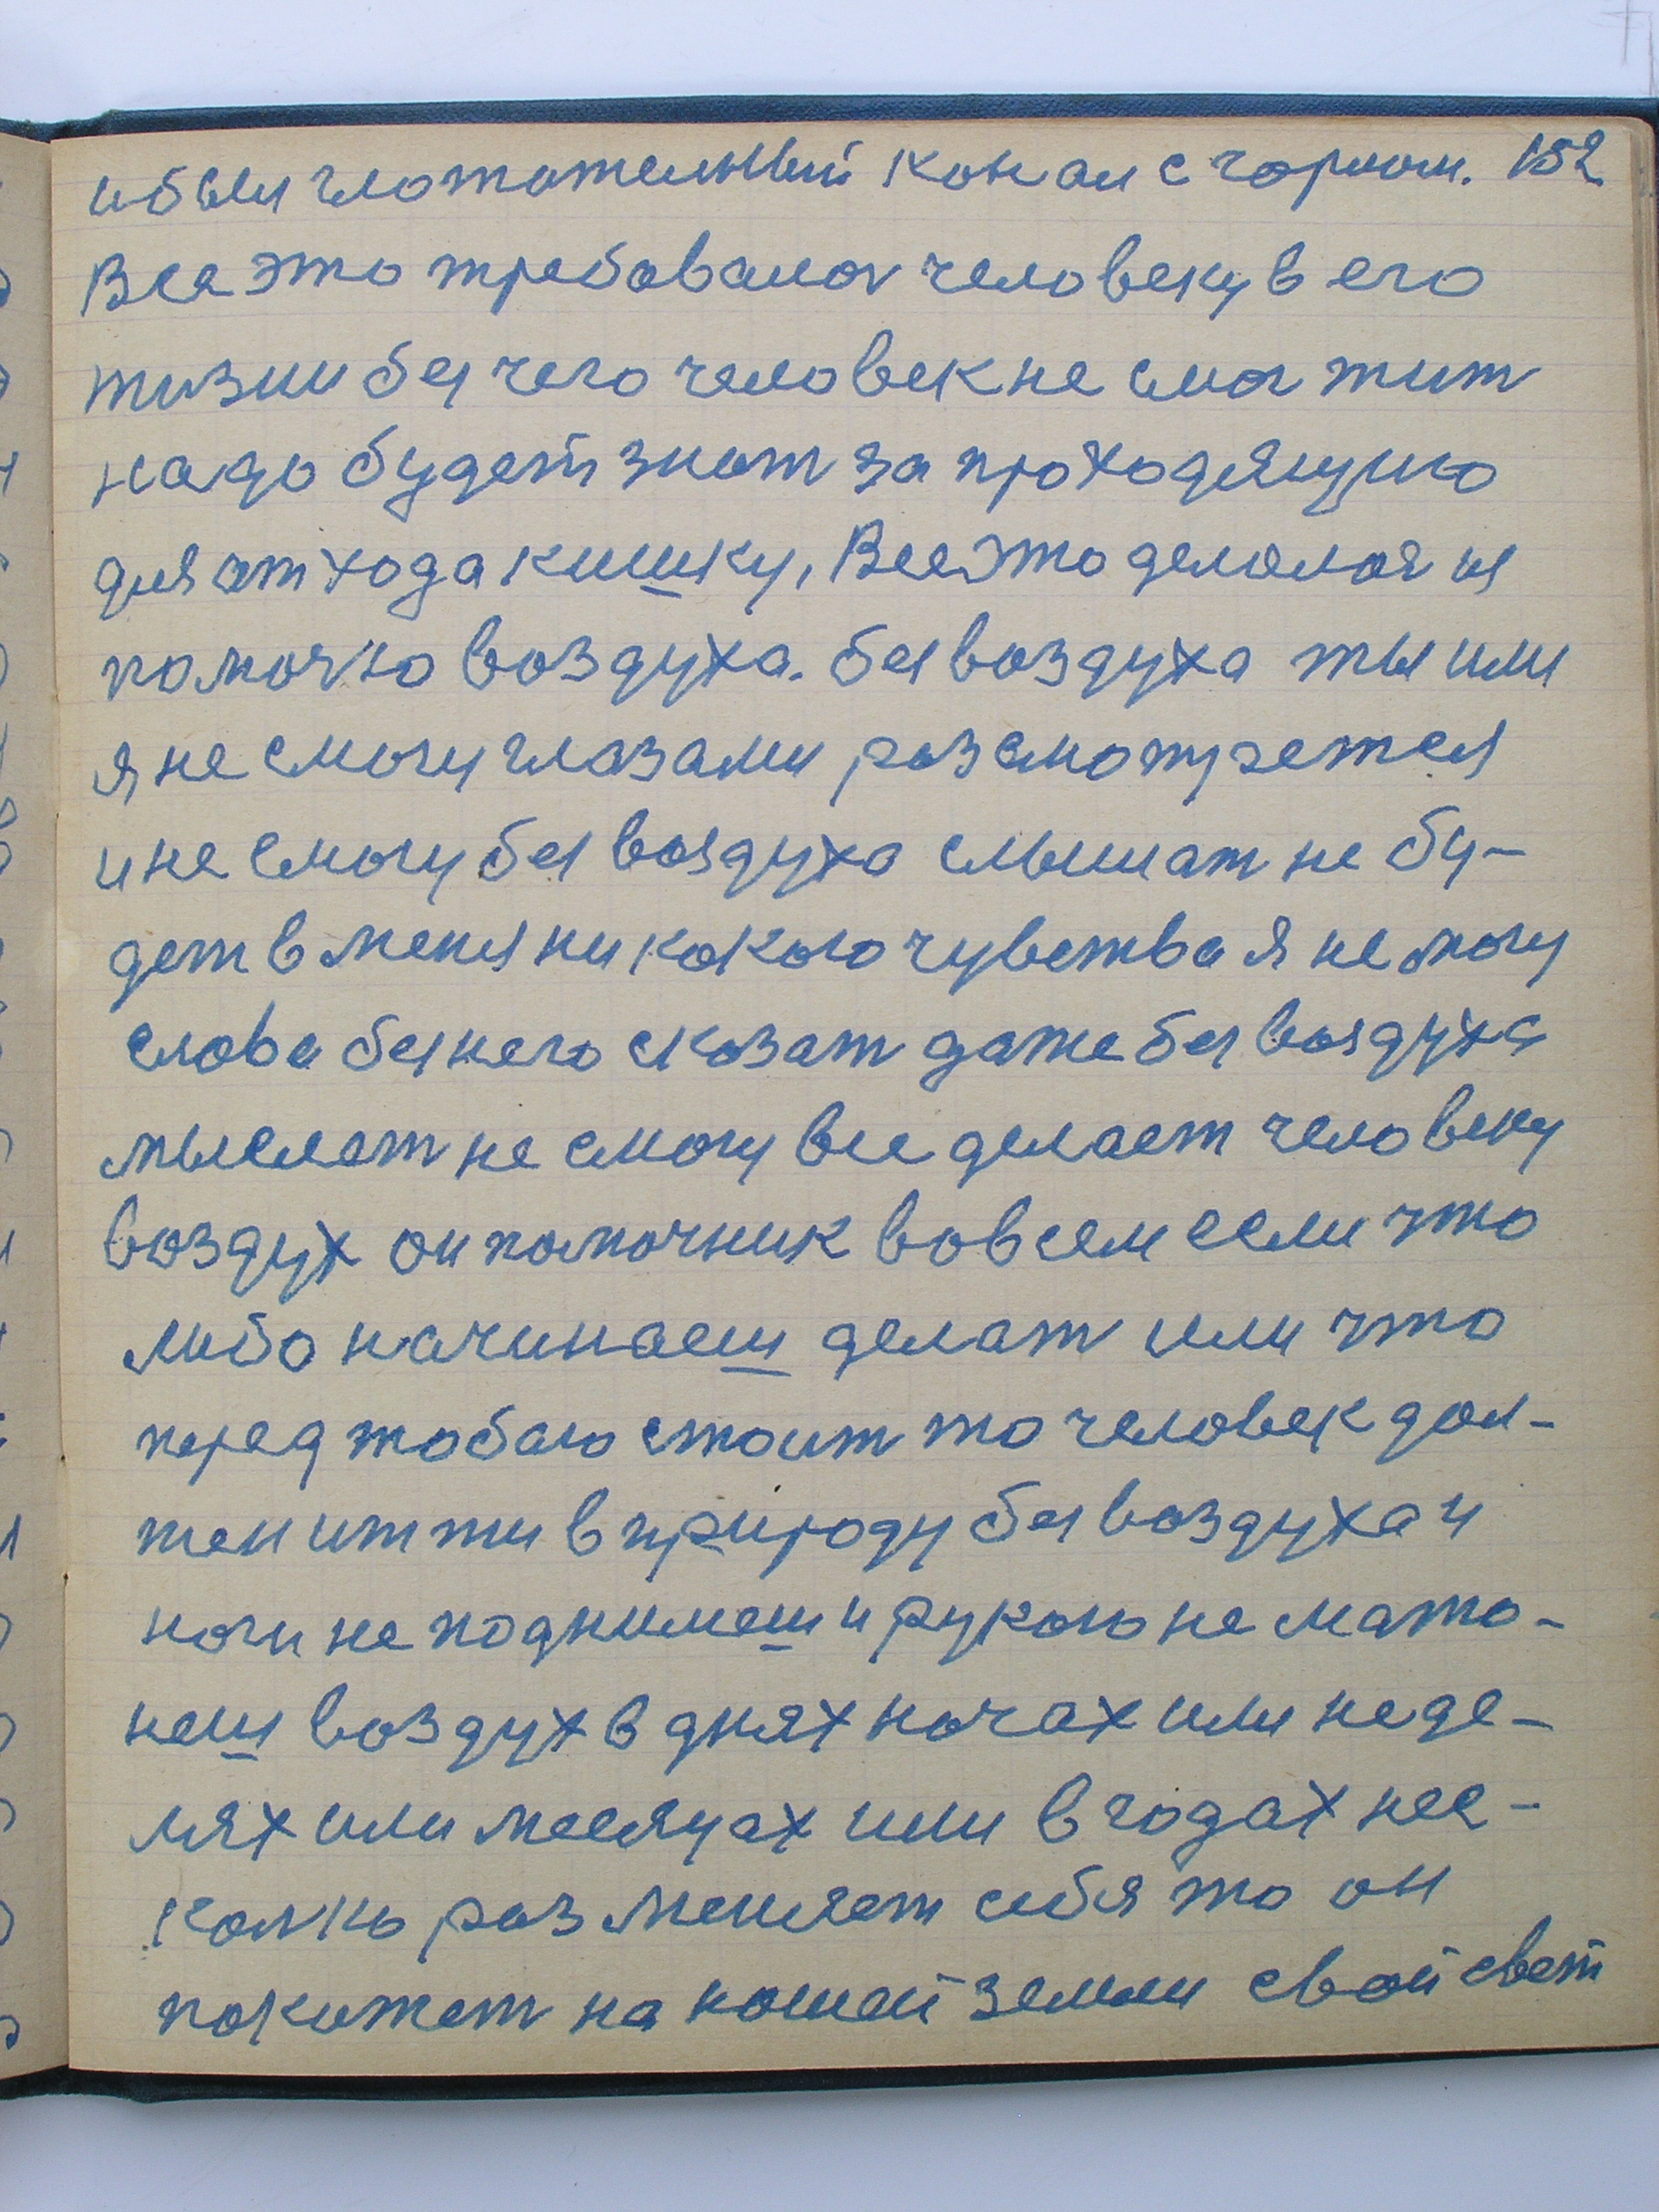 и был глотательный конал с горлом. 152
Все это требовалос человеку в его
жизни без чего человек не смог жит
надо будет знат за проходящую
для отхода кишку, Все это делалос из
помочю воздуха. без воздуха ты или
я не смогу глазами розсмотретса
и не смогу без воздуха слышат не бу-
дет в меня ни кокого чувства я не могу
слова без него сказат даже без воздуха
мыслет не смогу все делает человеку
воздух он помочник вовсем если что
либо начинаеш делат или что
перед тобаю стоит то человек дол-
жен итти в природу без воздуха и
ноги не поднимеш и рукою не мато-
неш воздух в днях ночах или неде-
лях или месяцах или в годах нес-
колко раз меняет себя то он
покижет на ношей земли свой свет